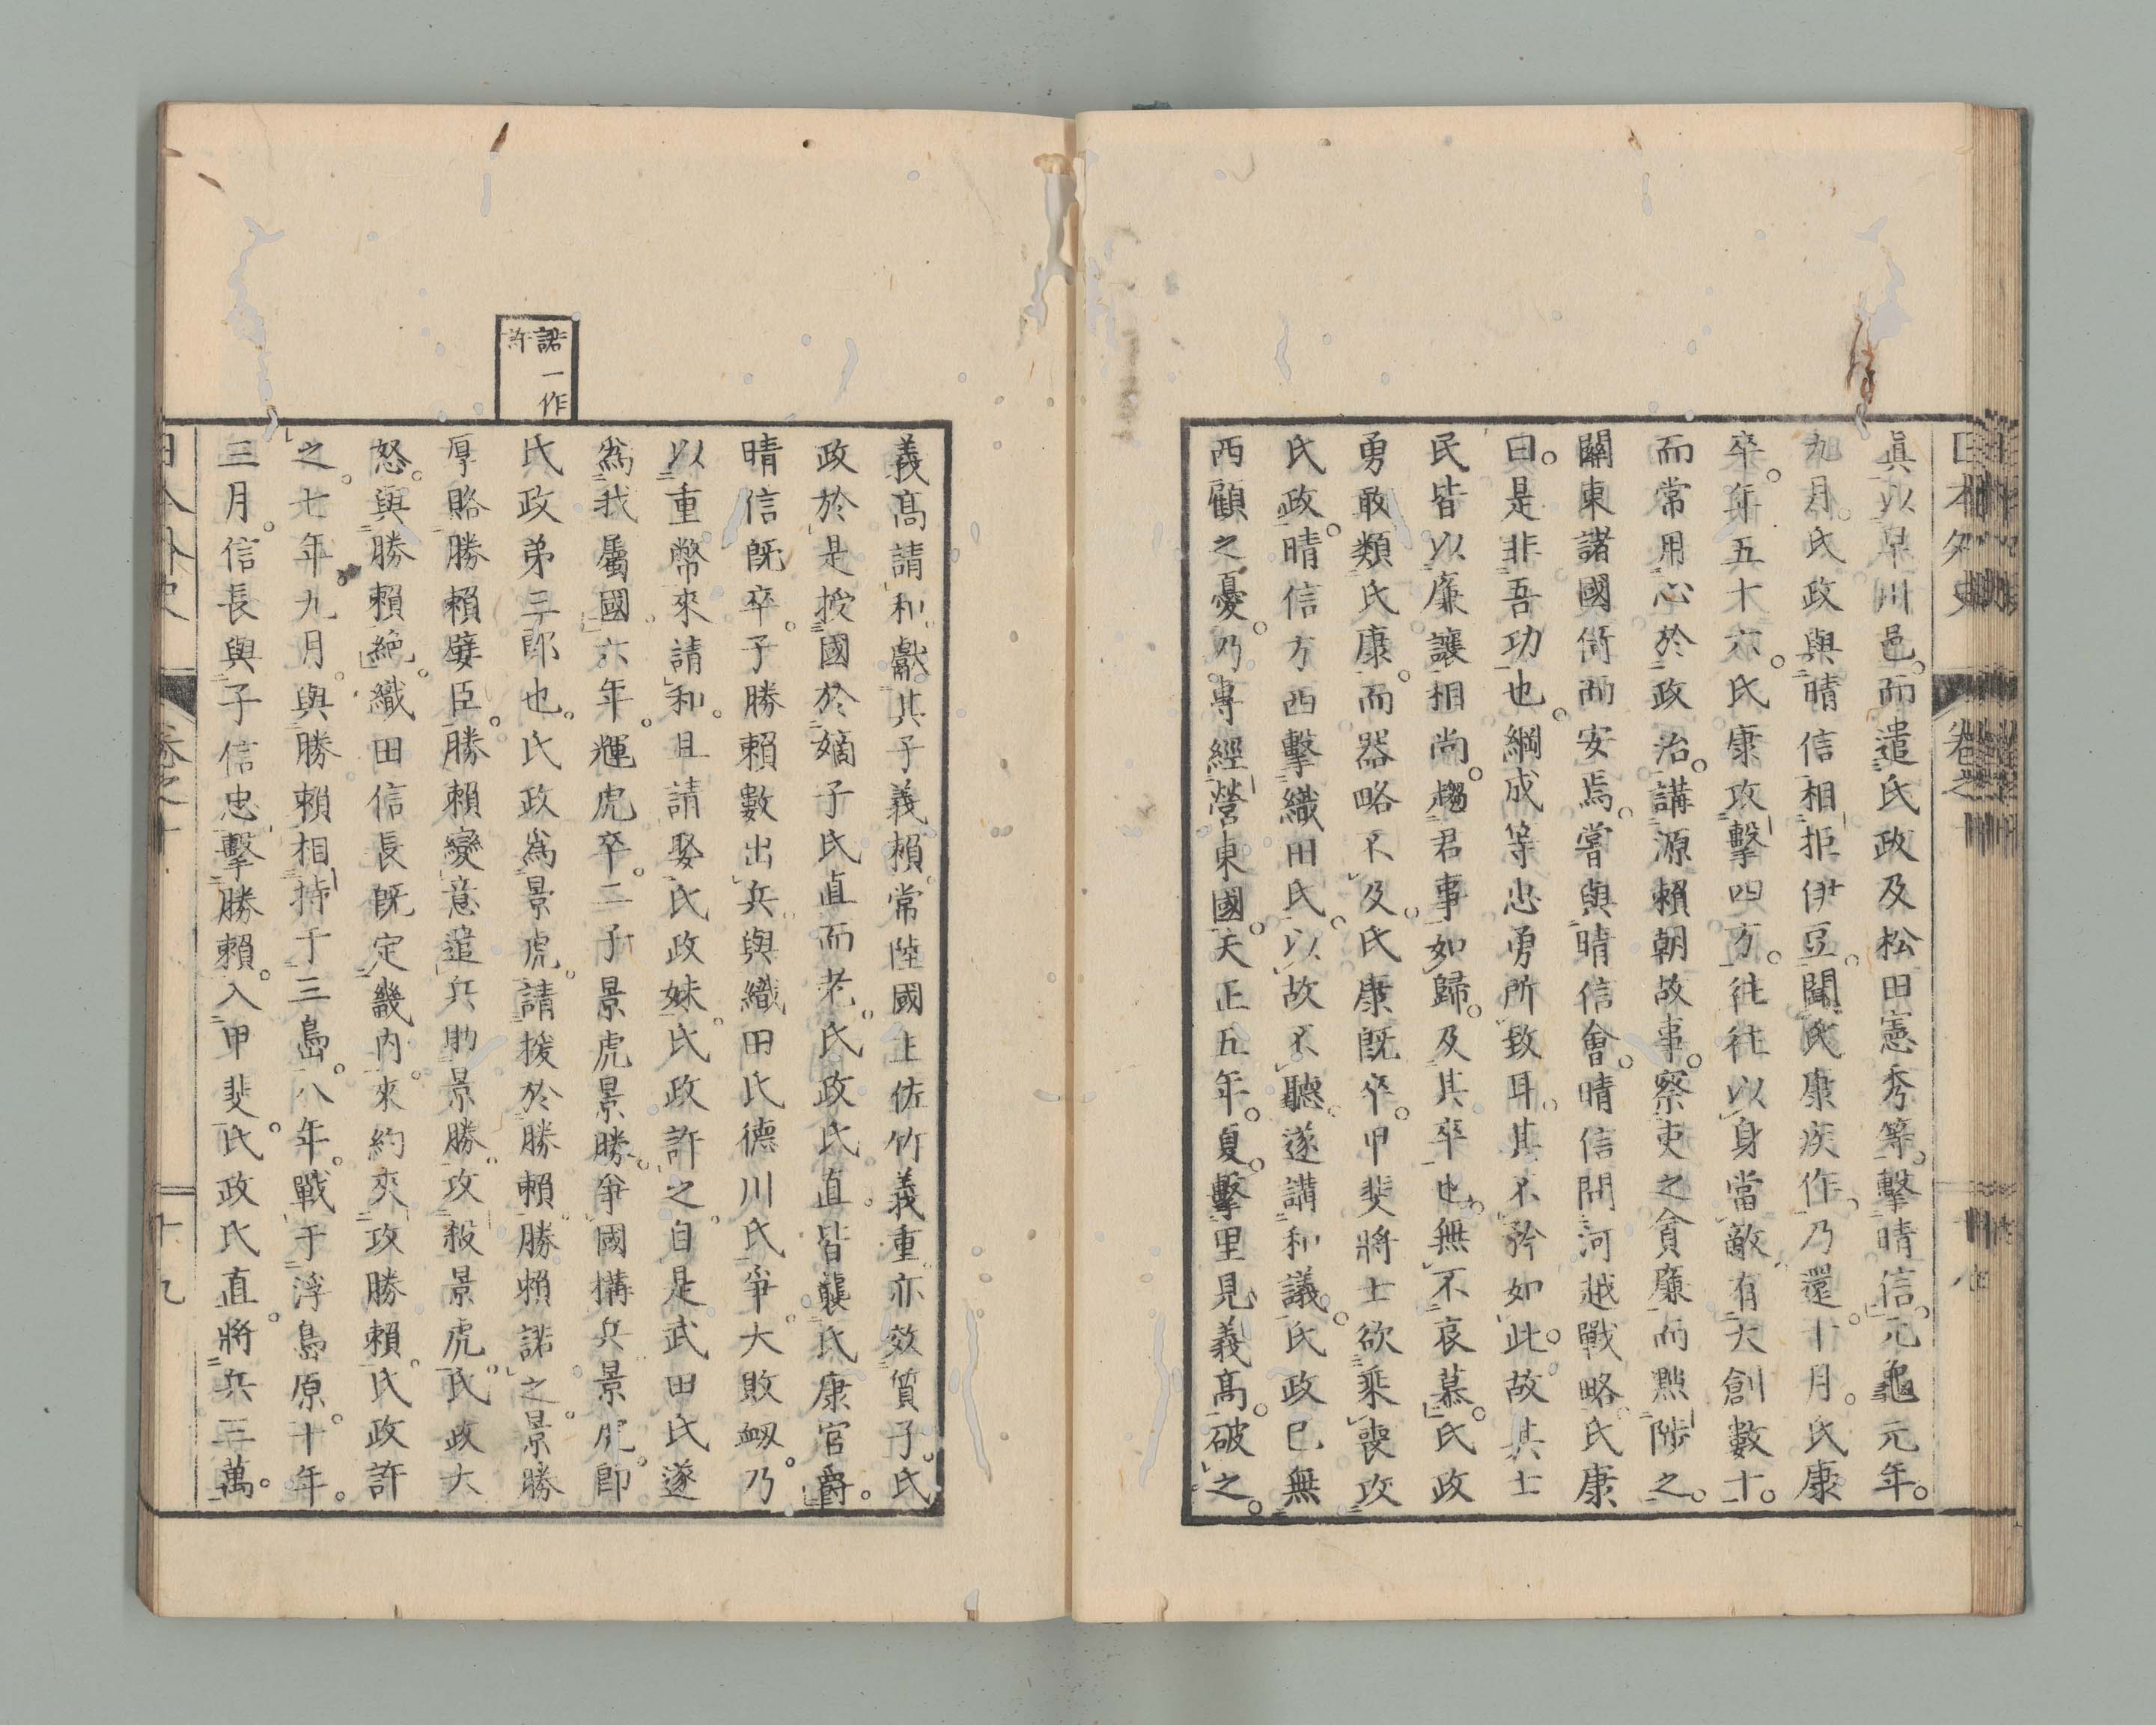 日本外史　卷之十
眞以早川邑。而遣氏政及松田憲秀等。擊晴信。元龜元年。
九月。氏政與晴信相拒伊豆。聞氏康疾作。乃還。十月。氏康
卒。年五十六。氏康攻擊四方。往往以身當敵。有大創數十。
而常用心於政治。講源賴朝故事。察吏之貪廉而黜陟之。
關東諸國倚而安焉。嘗與晴信會。晴信問河越戰略。氏康
曰。是非吾功也。綱成等忠勇所致耳。其不矜如此。故其士
民皆以廉讓相尚。趨君事如歸。及其卒也。無不哀慕。氏政
勇敢類氏康。而器略不及。氏康既卒。甲斐將士欲乘喪攻
氏政。晴信方西擊織田氏。以故不聽。遂講和議。氏政已無
西顧之憂。乃專經營東國。天正五年。夏。擊里見義高。破之。
義高請和。獻其子義賴。常陸國主佐竹義重亦效質子。氏
政於是授國於嫡子氏直而老。氏政氏直。皆襲氏康官爵。
晴信既卒。子勝賴數出兵。與織田氏德川氏爭。大敗衂。乃
以重幣來請和。且請娶氏政妹。氏政許之。自是武田氏遂
爲我屬國。六年。輝虎卒。二子景虎景勝。爭國構兵。景虎。卽
氏政弟三郎也。氏政爲景虎。請援於勝賴。勝賴諾之。景勝
厚賂勝賴嬖臣。勝賴變意。遣兵助景勝。攻殺景虎。氏政大
怒。與勝賴絶。織田信長既定畿内。來約夾攻勝賴。氏政許
之。七年。九月。與勝賴相持于三島。八年。戰于浮島原。十年。
三月。信長與子信忠擊勝賴。入甲斐。氏政氏直。將兵三萬。
諾一作
許
日本外史　卷之十　十九